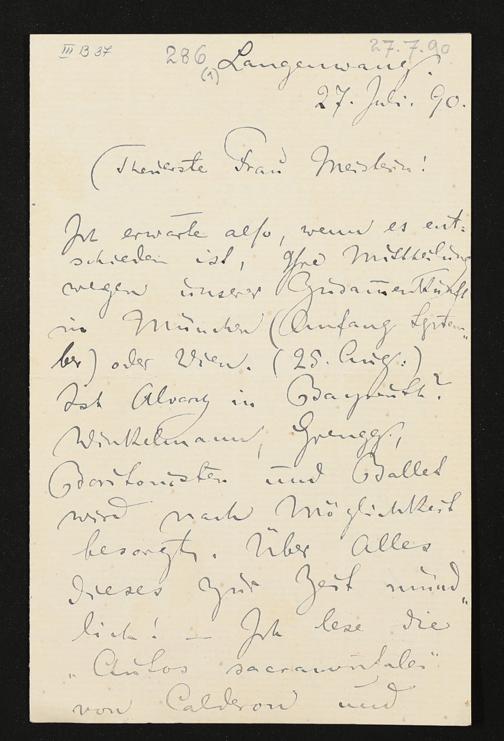 III B 37 286 27.7.90
(1) Langenwang.
27. Juli. 90.
Theuerste Frau Meisterin!
Ich erwarte also, wenn es ent-
schieden ist, Ihre Mittheilung
wegen unserer Zusam̅enkunft
in München (Anfang Septem„
ber) oder Wien. (25. Aug:)
Ist Alvary in Bayreuth?
Winkelmann, Grengg,
Baritonisten und Ballet
wird nach Möglichkeit
besorgt. Über Alles
dieses zur Zeit münd„
lich! – Ich lese die
„Autos sacramentales"
von Calderon und